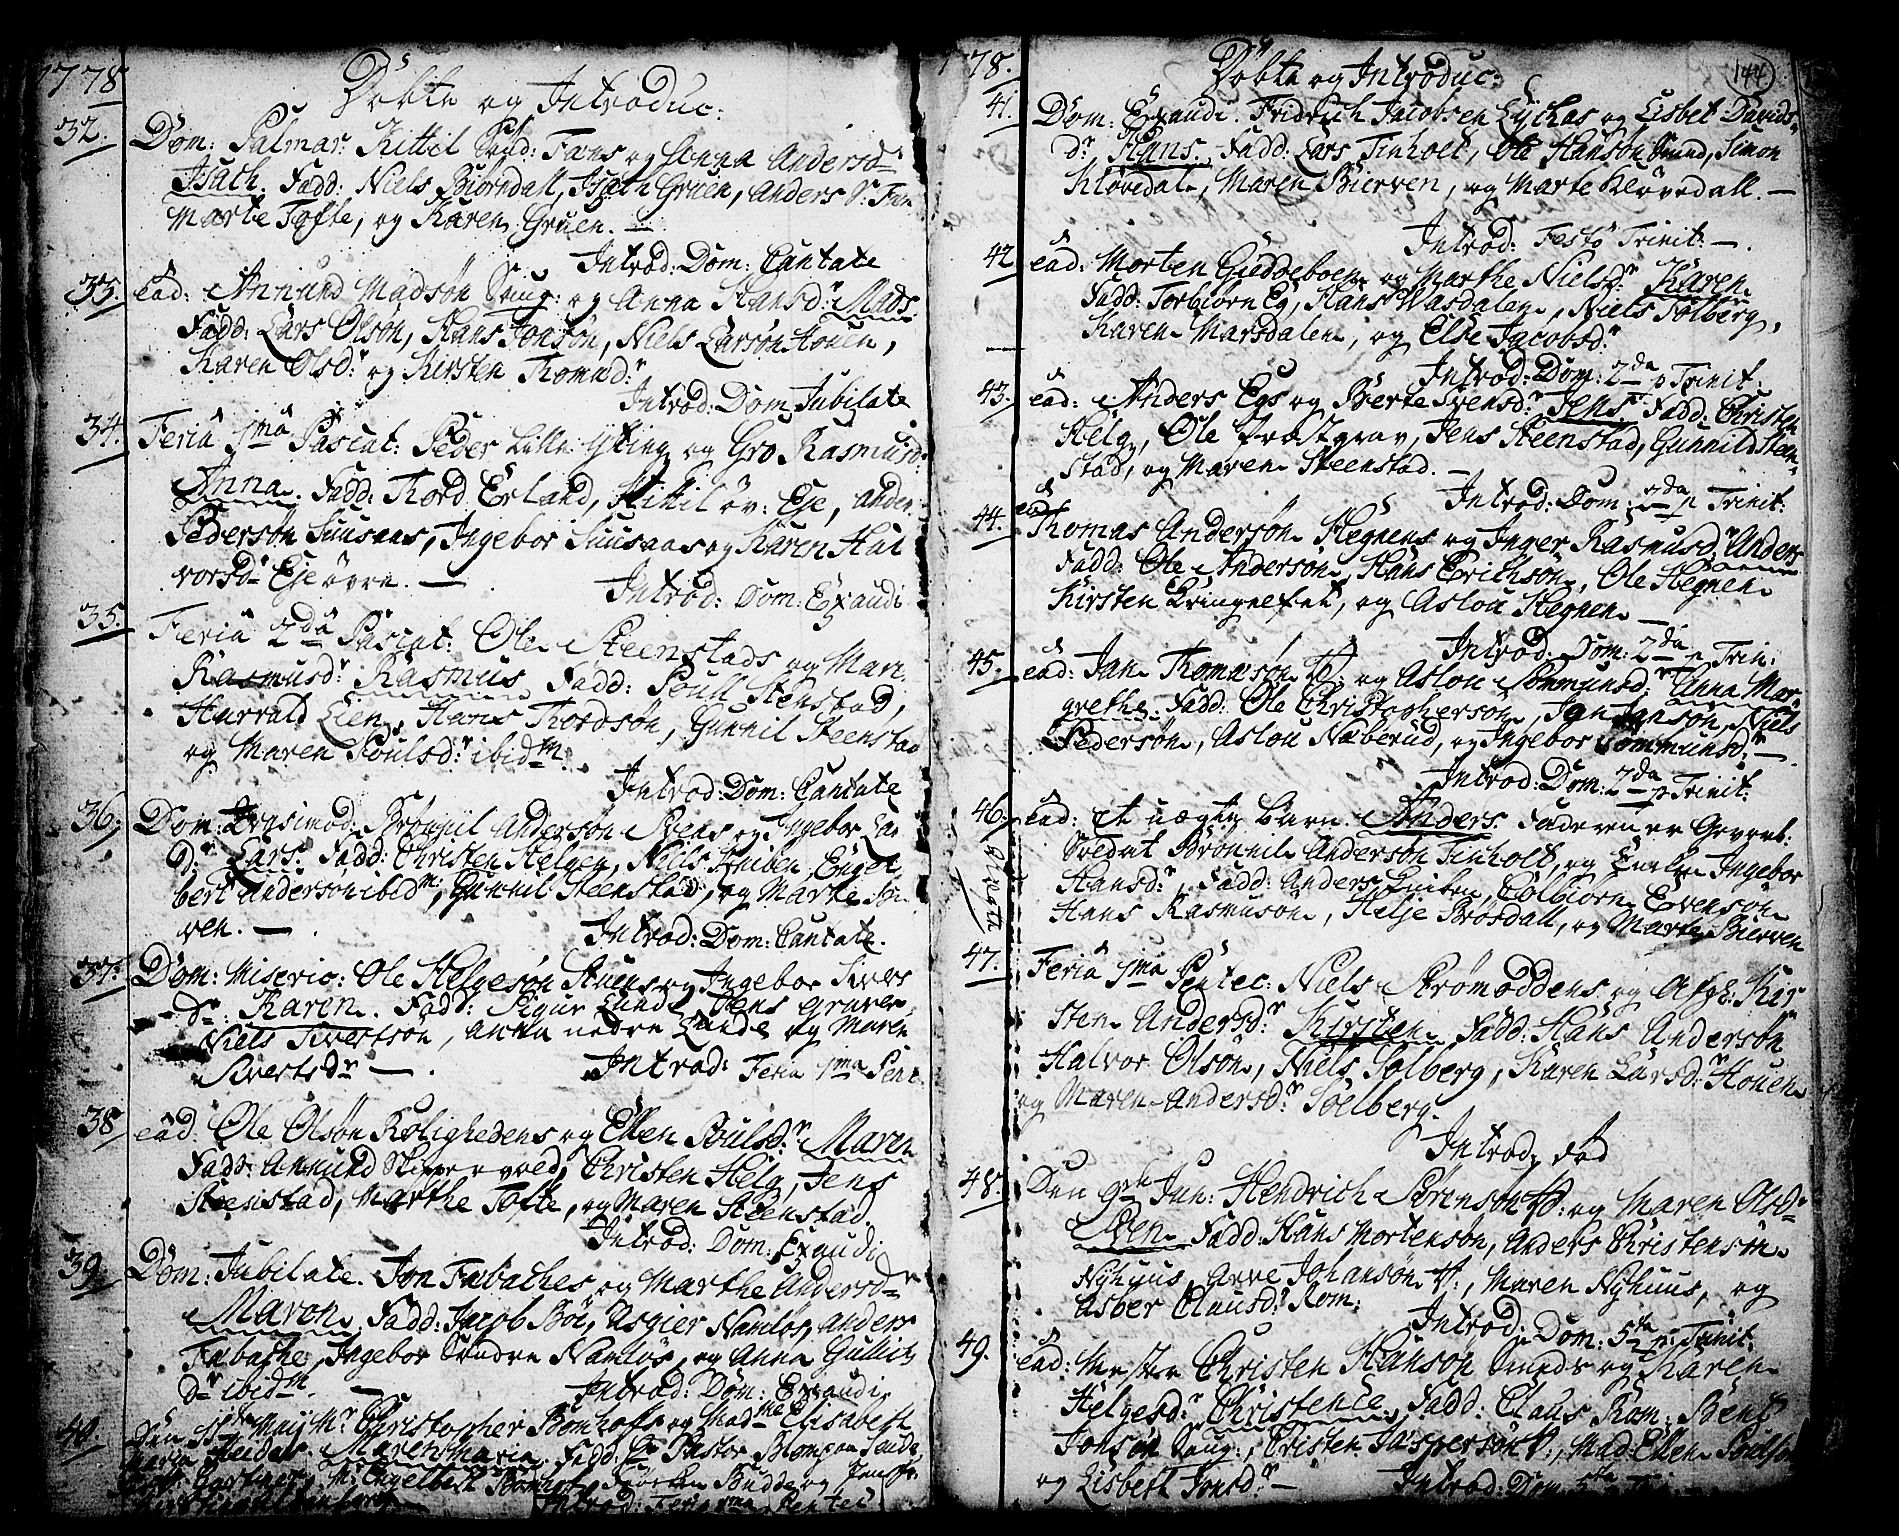 1778
Döbte og Introduc:
32. Dom: Palmar: Kittil Fæns og Anna Andersd:
Isach. Fadd: Niels Biorndall, Isach Gruen, Anders
Marte Tofte, og Karen Gruen. —
Introd: Dom: Cantate
33. ead: Amund Madsön Saug: og Anna Hansd:r Mads.
Fadd: Lars Olsön, Hans Jonsön, Niels Larsön Houen,
Karen Olsd:r og Kirsten Thomasd:r
Introd: Dom Jubilate
34. Feria 1ma Pascat: Peder Lille og Gro Rasmusd:
Anna. Fadd: Thord Erland, Kittil öv: Eje, Ander
Pedersön Suusaas, Ingebor Suusaas og Karen Hal
vorsd:r Eje övre. —
Introd: Dom: Exaudi
35. Feria 2da Pascat: Ole Steenstads og Mari
Rasmusd:r Rasmus Fadd: Poull Stenstad,
Harrald Lien, Hans Thordsön, Gunnil Steenstad
og Maren Poulsd:r ibidm.
Introd: Dom: Cantate
36. Dom: Qvasimod: Brönnil Andersön Svens og Ingebor Lar
d:r Lars. Fadd: Christen Helgen, Niels Kniben, Engel
bert Andersön ibidm:, Gunnil Steenstad, og Marte
ven. —
Introd: Dom: Cantate.
37. Dom: Miseric: Ole Helgesön Stuens og Ingebor Sivers
dr. Karen. Fadd: Sigur Lunde, Jens Graver,
Niels Sivertsön, Anna nedre Lunde og Maren
Sivertsdr —.
Introd: Feria 1ma Pent.
38. ead. Ole Olsön Rolighedens og Ellen Poulsd:r Maren
Fadd: Amund Skippervold, Christen Helg, Jens
Steenstad, Marthe Tofte, og Maren Steenstad.
Introd: Dom: Exaudi
39. Dom: Jubilate. Jon Fabaches og Marthe Andersdr
Maron. Fadd: Jacob Böe, Asgier Namlös, Anders
Fabache, Ingebor Söndre Namlös, og Anna Gullich
dr ibidm. —
Introd: Dom: Exaudi
40. Den 11te Maij Mr Christopher Bomhoff og Madme Elisabeth
Maria Maren Maria. Fadd: Hr Pastor
Gartner, Mr Engelbret Bomhof, Budde og
Introd: Feria 1ma Pentec
1778.
144
Döbte og Introduc:
41. Dom: Exaudi. Fridrich Jacobsen Lychas og Lisbet Davids
dr Hans. Fadd: Lars Tinholt, Ole Hansön Smed, Simon
Klövedal, Maren Bierven, og Marte Klövedall. —
Introd: Festo Trinit: —.
42 ead: Morten Gieddeboen og Marthe Nielsd:r Karen
Fadd: Torbiörn Eg, Hans Wasdalen, Niels Solberg,
Karen Marsdalen, og Else Jacobsd:r
Introd: Dom: 2da p Trinit:
43. ead: Anders Egs og Berte Svensd:r Jens Fadd: Christen
Helg, Ole Prostgrav, Jens Steenstad, Gunnild Steen-
stad, og Maren Steenstad. —
Introd: Dom: 2da p Trinit:
44. ead Thomas Andersön Hegnens og Inger Rasmusd:r Anders
Fadd: Ole Andersön, Hans Erichsön, Ole Hegnen
Kirsten Kringelfet, og Aslou Hegnen —.
Introd: Dom: 2da p Trin:
45. ead: Jan Thomæsön og Aslou Aommunsd:r Anna Mar-
grethe. Fadd: Ole Christophersön, Jan Jansön, Niels
Pedersön, Aslou Næberud, og Ingebor Aommunsd:r —.
Introd: Dom: 2da p Trinit:
46. ead: et uægte Barn Anders. Faderen er Gevorb:
Soldat Brönnil Andersön Tinholt, og Enken Ingebor
Hansd:r, Fadd: Anders Kniben, Colbiörn Evensön
Hans Rasmusön, Helje Brösdall, og Marte Bierven
47. Feria 1ma Pentec: Niels Strömoddens og Afgl: Kir
sten Andersd:r Kirsten. Fadd: Hans Andersön
Halvor Olsön, Niels Solberg, Karen Larsd:r Houen
og Maren Andersd:r Soelberg.
Introd. död
48. Den 9de Jun: Hendrich Sörensön og Maren Olsdr
Sven. Fadd: Hans Mortensön, Anders Christensön
Nyhuus, Arve Johansön, Maren Nyhuus, og
Asber Clausd:r Rom.
Introd: Dom: 5ta p: Trinit.
49. ead: Mester Christen Hansön Smeds og Karen
Helgesd:r Christence. Fadd: Claus Rom: Bent
Jonsön Saug:, Cristen Jaspersön, Mad Ellen
og Lisbeth Jonsd:r —
Introd: Dom 5ta